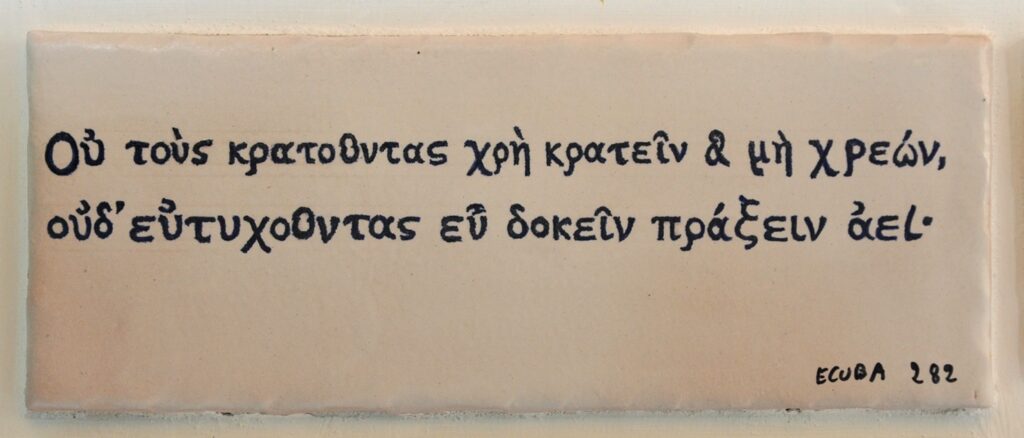 Οὐ τοὺς κρατοθντας χρὴ κρατεῖν ἃ μὴ χρεών,
οὐδ' εὐτυχοθντας εὖ δοκεῖν πράξειν ἀεί·
ECUBA 282